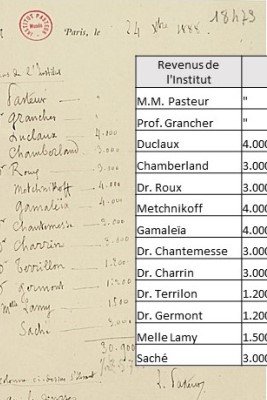 INSTITUT PASTEUR
Musée
18479
Paris, le 24 Xbre 1888
de l'Institut
Pasteur "
Grancher "
Duclaux 4.000
Chamberland 3.000
Roux 3.000
Metchnikoff 4.000
Gamaleïa 4.000
Chantemesse 3.000
Charrin 3.000
Terrillon 1.200
Germont 1.200
Melle Lamy 1500
Saché 3.000
30.900
L. Pasteur
Revenus de
l'Institut
M.M. Pasteur "
Prof. Grancher "
Duclaux 4.000
Chamberland 3.000
Dr. Roux 3.000
Metchnikoff 4.000
Gamaleia 4.000
Dr. Chantemesse 3.000
Dr. Charrin 3.000
Dr. Terrilon 1.200
Dr. Germont 1.200
Melle Lamy 1.500
Saché 3.000